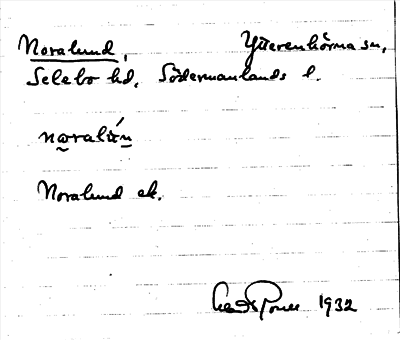 Noralund, Ytterenhörna sn,
Selebo hd, Södermanlands l.
noralún
Noralund ek.
1932